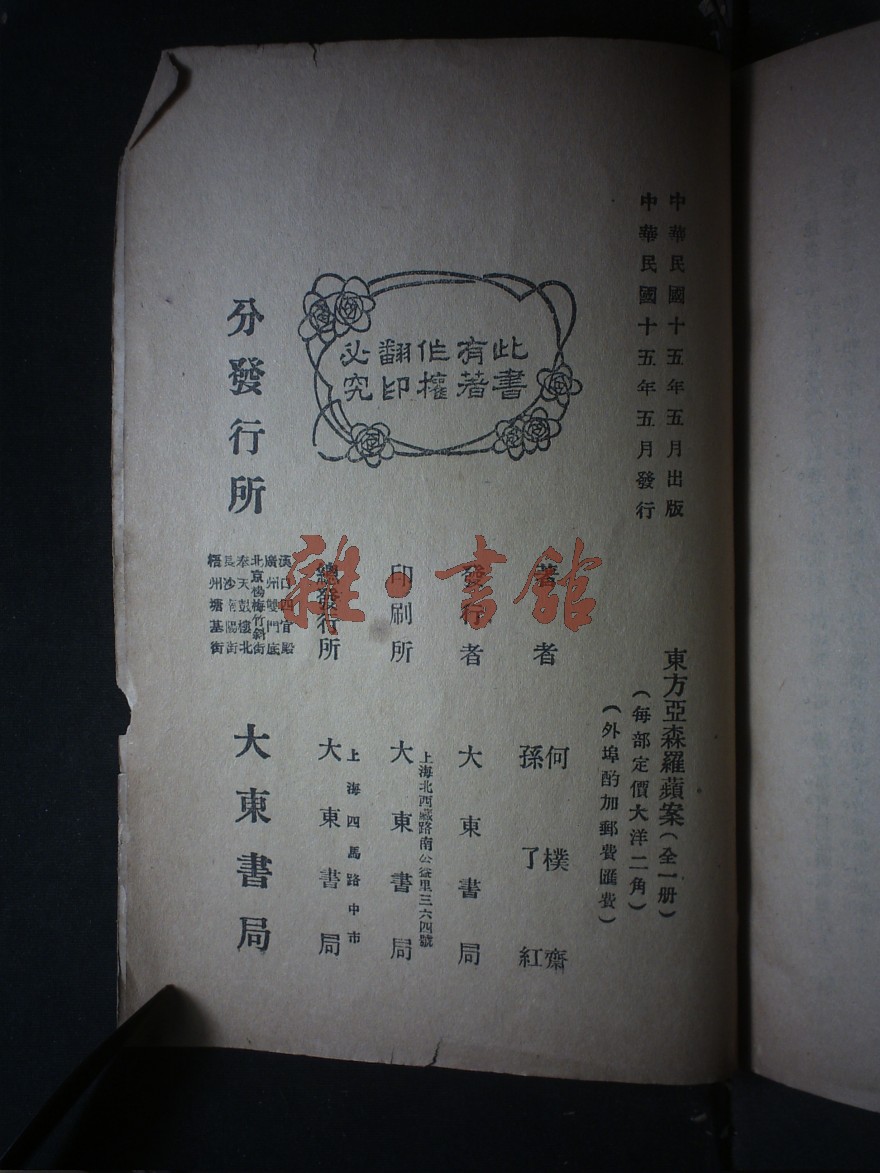 中華民國十五年五月出版
中華民國十五年五月發行
東方亞森羅蘋案(全一册)
(每部定價大洋二角)
(外埠酌加郵費匯費)
此書
有著
作權
翻印
必究
著者
何樸齋
孫了紅
發行者
大東書局
印刷所
上海北西藏路南公益里三六四號
大東書局
總發行所
上海四馬路中市
大東書局
分發行所
漢口四官殿
廣州雙門底
北京楊梅竹斜街
奉天鼓樓北
長沙南陽街
梧州塘基街
大東書局
雜·書館